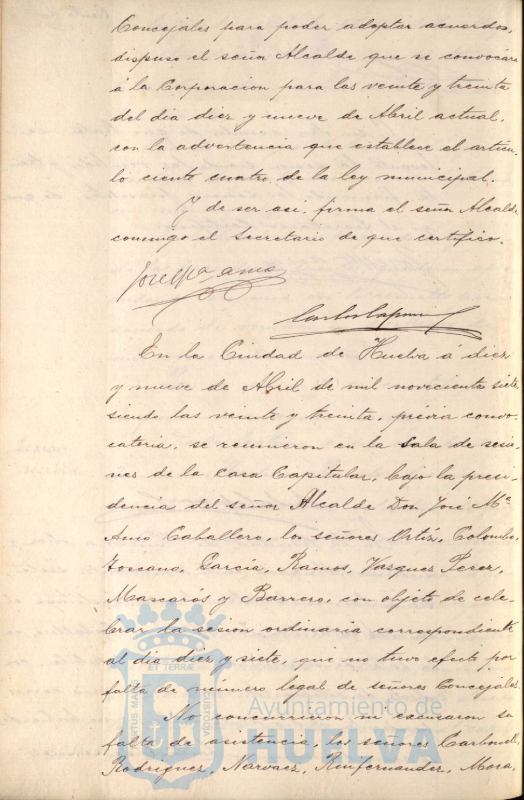 Concejales para poder adoptar acuerdos,
dispuso el señor Alcalde que se convocára
á la Corporacion para las veinte y treinta
del dia diez y nueve de Abril actual,
con la advertencia que establece el artícu-
lo ciento cuatro de la ley municipal.
Y de ser así, firma el señor Alcalde
conmigo el Secretario de que certifico.
José Mª amo
En la Ciudad de Huelva á diez
y nueve de Abril de mil novecientos siete,
siendo las veinte y treinta, prévia convo-
catoria, se reunieron en la Sala de sesio-
nes de la Casa Capitular, bajo la presi-
dencia del señor Alcalde Don José Mª
Amo Caballero, los señores Ortiz, Colombo,
Toscano, García, Ramos, Vasquez Perez,
Mascarós y Barrero, con objeto de cele-
brar la sesion ordinaria correspondiente
al dia diez y siete, que no tuvo efecto por
falta de número legal de señores Concejales.
No concurrieron ni escusaron su
falta de asistencia, los señores Carbonell,
Rodriguez, Narvaez, Mora,
PORTUS MARIS
ET TERRÆ
CUSTODIA
Ayuntamiento de
HUELVA